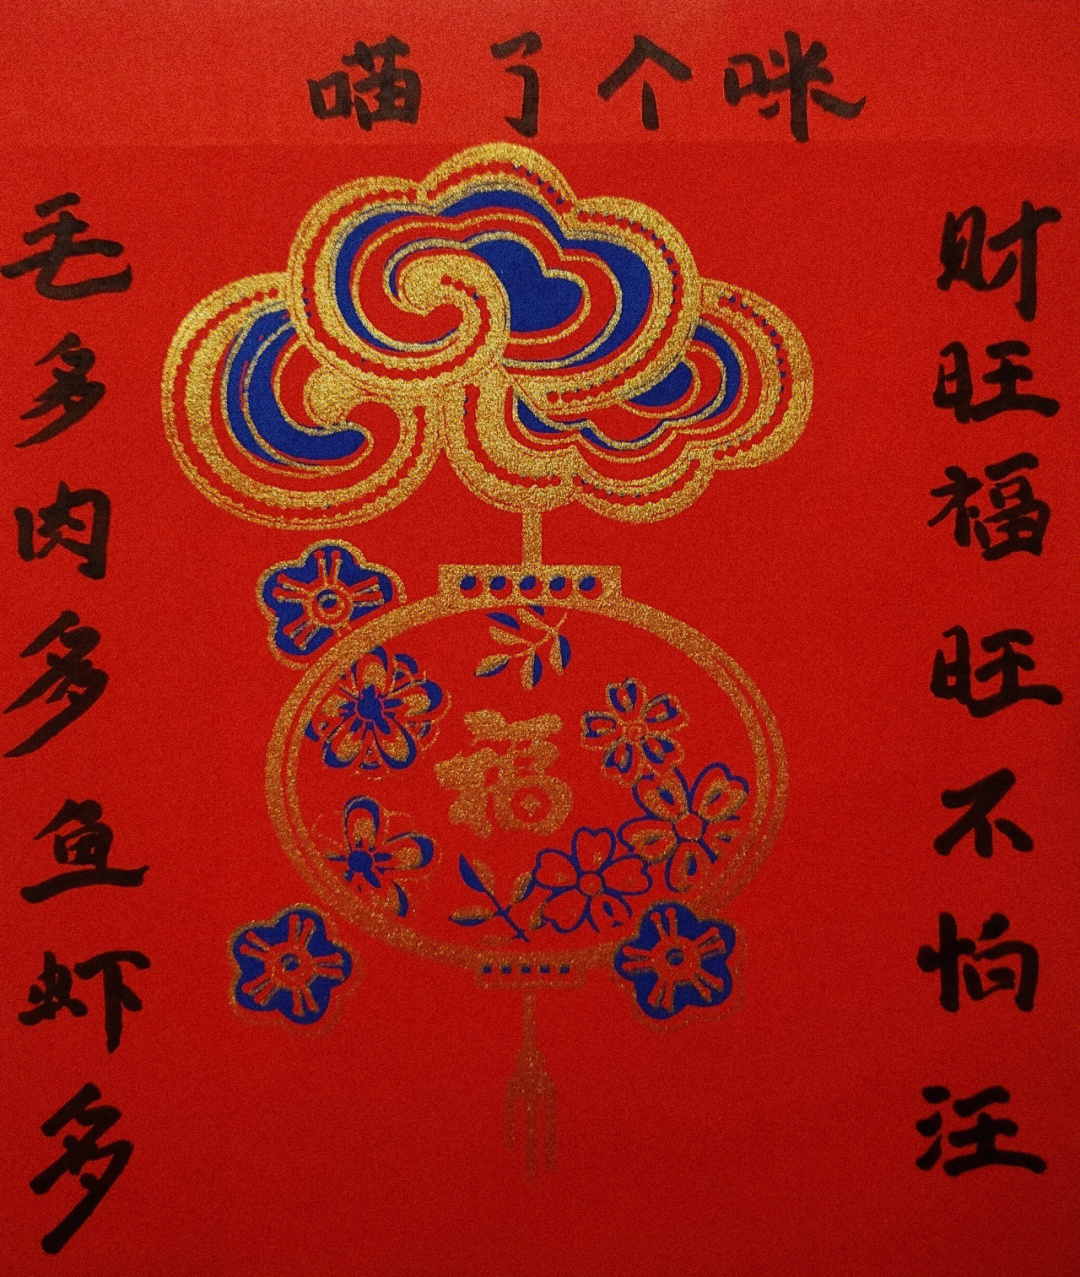 喵了个咪
财旺福旺不怕汪
毛多肉多鱼虾多
福